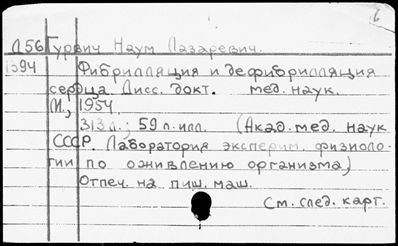 Д56 Гурвич Наум Лазаревич.
1394 Фибрилляция и дефибрилляция
сердца. Дисс. докт. мед. наук.
М., 1954
313 л.; 59 л. илл. (Акад. мед. наук
СССР. Лаборатория эксперим. физиоло-
гии по оживлению организма)
Отпеч. на пиш. маш.
См. след. карт.